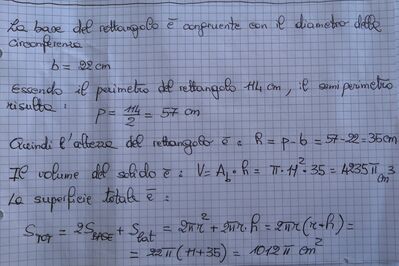 La base del rettangolo è congruente con il diametro della
circonferenza
b = 22 cm
Essendo il perimetro del rettangolo 114 cm, il semiperimetro
risulta :
p = 114/2 = 57 cm
Quindi l'altezza del rettangolo è : h = p - b = 57 - 22 = 35 cm
Il volume del solido è : V = A_b · h = π · 11² · 35 = 4235 π cm³
La superficie totale è :
S_TOT = 2S_BASE + S_lat = 2πr² + 2πr·h = 2πr(r+h) =
= 22π(11+35) = 1012 π cm²